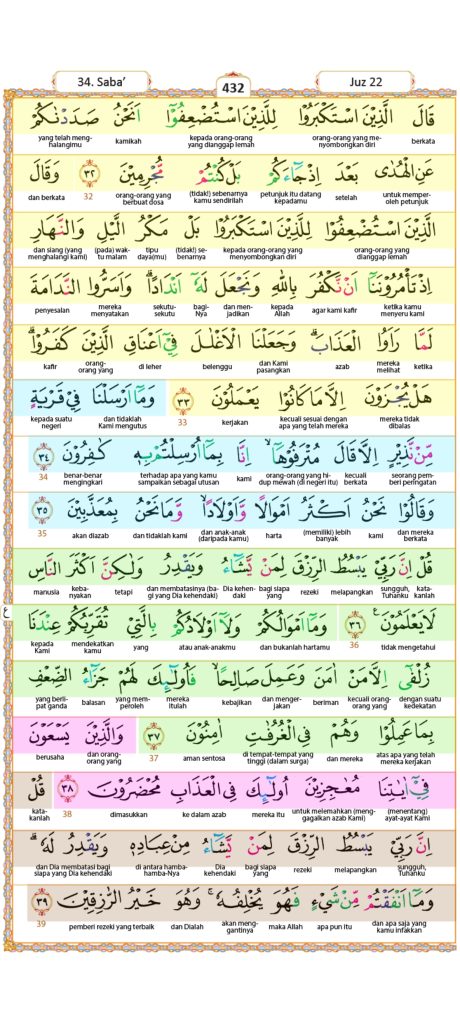 34. Saba’ 432 Juz 22
قَالَ الَّذِيْنَ اسْتَكْبَرُوْا لِلَّذِيْنَ اسْتُضْعِفُوْٓا اَنَحْنُ صَدَدْنٰكُمْ
berkata orang-orang yang me-nyombongkan diri kepada orang-orang yang dianggap lemah kamikah yang telah meng-halangimu
عَنِ الْهُدٰى بَعْدَ اِذْ جَاۤءَكُمْ بَلْ كُنْتُمْ مُّجْرِمِيْنَ ٣٢ وَقَالَ
untuk memper-oleh petunjuk setelah petunjuk itu datang kepadamu (tidak!) sebenarnya kamu sendirilah orang-orang yang berbuat dosa 32 dan berkata
الَّذِيْنَ اسْتُضْعِفُوْا لِلَّذِيْنَ اسْتَكْبَرُوْا بَلْ مَكْرُ الَّيْلِ وَالنَّهَارِ
orang-orang yang dianggap lemah kepada orang-orang yang menyombongkan diri (tidak!) se-benarnya tipu daya(mu) (pada) wak-tu malam dan siang (yang menghalangi kami)
اِذْ تَأْمُرُوْنَنَآ اَنْ نَّكْفُرَ بِاللّٰهِ وَنَجْعَلَ لَهٗٓ اَنْدَادًاۗ وَاَسَرُّوا النَّدَامَةَ
ketika kamu menyeru kami agar kami kafir kepada Allah dan men-jadikan bagi-Nya sekutu-sekutu mereka menyatakan penyesalan
لَمَّا رَاَوُا الْعَذَابَۗ وَجَعَلْنَا الْاَغْلٰلَ فِيْٓ اَعْنَاقِ الَّذِيْنَ كَفَرُوْاۗ
ketika mereka melihat azab dan Kami pasangkan belenggu di leher orang-orang yang kafir
هَلْ يُجْزَوْنَ اِلَّا مَا كَانُوْا يَعْمَلُوْنَ ٣٣ وَمَآ اَرْسَلْنَا فِيْ قَرْيَةٍ
mereka tidak dibalas kecuali sesuai dengan apa yang telah mereka kerjakan 33 dan tidaklah Kami mengutus kepada suatu negeri
مِّنْ نَّذِيْرٍ اِلَّا قَالَ مُتْرَفُوْهَآۙ اِنَّا بِمَآ اُرْسِلْتُمْ بِهٖ كٰفِرُوْنَ ٣٤
seorang pem-beri peringatan kecuali berkata orang-orang yang hi-dup mewah (di negeri itu) kami terhadap apa yang kamu sampaikan sebagai utusan benar-benar mengingkari 34
وَقَالُوْا نَحْنُ اَكْثَرُ اَمْوَالًا وَّاَوْلَادًاۙ وَّمَا نَحْنُ بِمُعَذَّبِيْنَ ٣٥
dan mereka berkata kami (memiliki) lebih banyak harta dan anak-anak (daripada kamu) dan tidaklah kami akan diazab 35
قُلْ اِنَّ رَبِّيْ يَبْسُطُ الرِّزْقَ لِمَنْ يَّشَاۤءُ وَيَقْدِرُ وَلٰكِنَّ اَكْثَرَ النَّاسِ
kata-kanlah sungguh, Tuhanku melapangkan rezeki bagi siapa yang Dia kehen-daki dan membatasinya (ba-gi yang Dia kehendaki) tetapi keba-nyakan manusia
لَا يَعْلَمُوْنَ ٣٦ وَمَآ اَمْوَالُكُمْ وَلَآ اَوْلَادُكُمْ بِالَّتِيْ تُقَرِّبُكُمْ عِنْدَنَا
tidak mengetahui 36 dan bukanlah hartamu atau anak-anakmu yang mendekatkan kamu kepada Kami
زُلْفٰىٓ اِلَّا مَنْ اٰمَنَ وَعَمِلَ صَالِحًاۙ فَاُولٰۤىِٕكَ لَهُمْ جَزَاۤءُ الضِّعْفِ
dengan suatu kedekatan kecuali orang-orang yang beriman dan menger-jakan kebajikan mereka itulah yang mem-peroleh balasan yang berli-pat ganda
بِمَا عَمِلُوْا وَهُمْ فِى الْغُرُفٰتِ اٰمِنُوْنَ ٣٧ وَالَّذِيْنَ يَسْعَوْنَ
atas apa yang telah mereka kerjakan dan mereka di tempat-tempat yang tinggi (dalam surga) aman sentosa 37 dan orang-orang yang berusaha
فِيْٓ اٰيٰتِنَا مُعٰجِزِيْنَ اُولٰۤىِٕكَ فِى الْعَذَابِ مُحْضَرُوْنَ ٣٨ قُلْ
(menentang) ayat-ayat Kami untuk melemahkan (meng-gagalkan azab Kami) mereka itu ke dalam azab dimasukkan 38 kata-kanlah
اِنَّ رَبِّيْ يَبْسُطُ الرِّزْقَ لِمَنْ يَّشَاۤءُ مِنْ عِبَادِهٖ وَيَقْدِرُ لَهٗۗ
sungguh, Tuhanku melapangkan rezeki bagi siapa yang Dia kehendaki di antara hamba-hamba-Nya dan Dia membatasi bagi siapa yang Dia kehendaki
وَمَآ اَنْفَقْتُمْ مِّنْ شَيْءٍ فَهُوَ يُخْلِفُهٗۚ وَهُوَ خَيْرُ الرّٰزِقِيْنَ ٣٩
dan apa saja yang kamu infakkan apa pun itu maka Allah akan meng-gantinya dan Dialah pemberi rezeki yang terbaik 39
ع